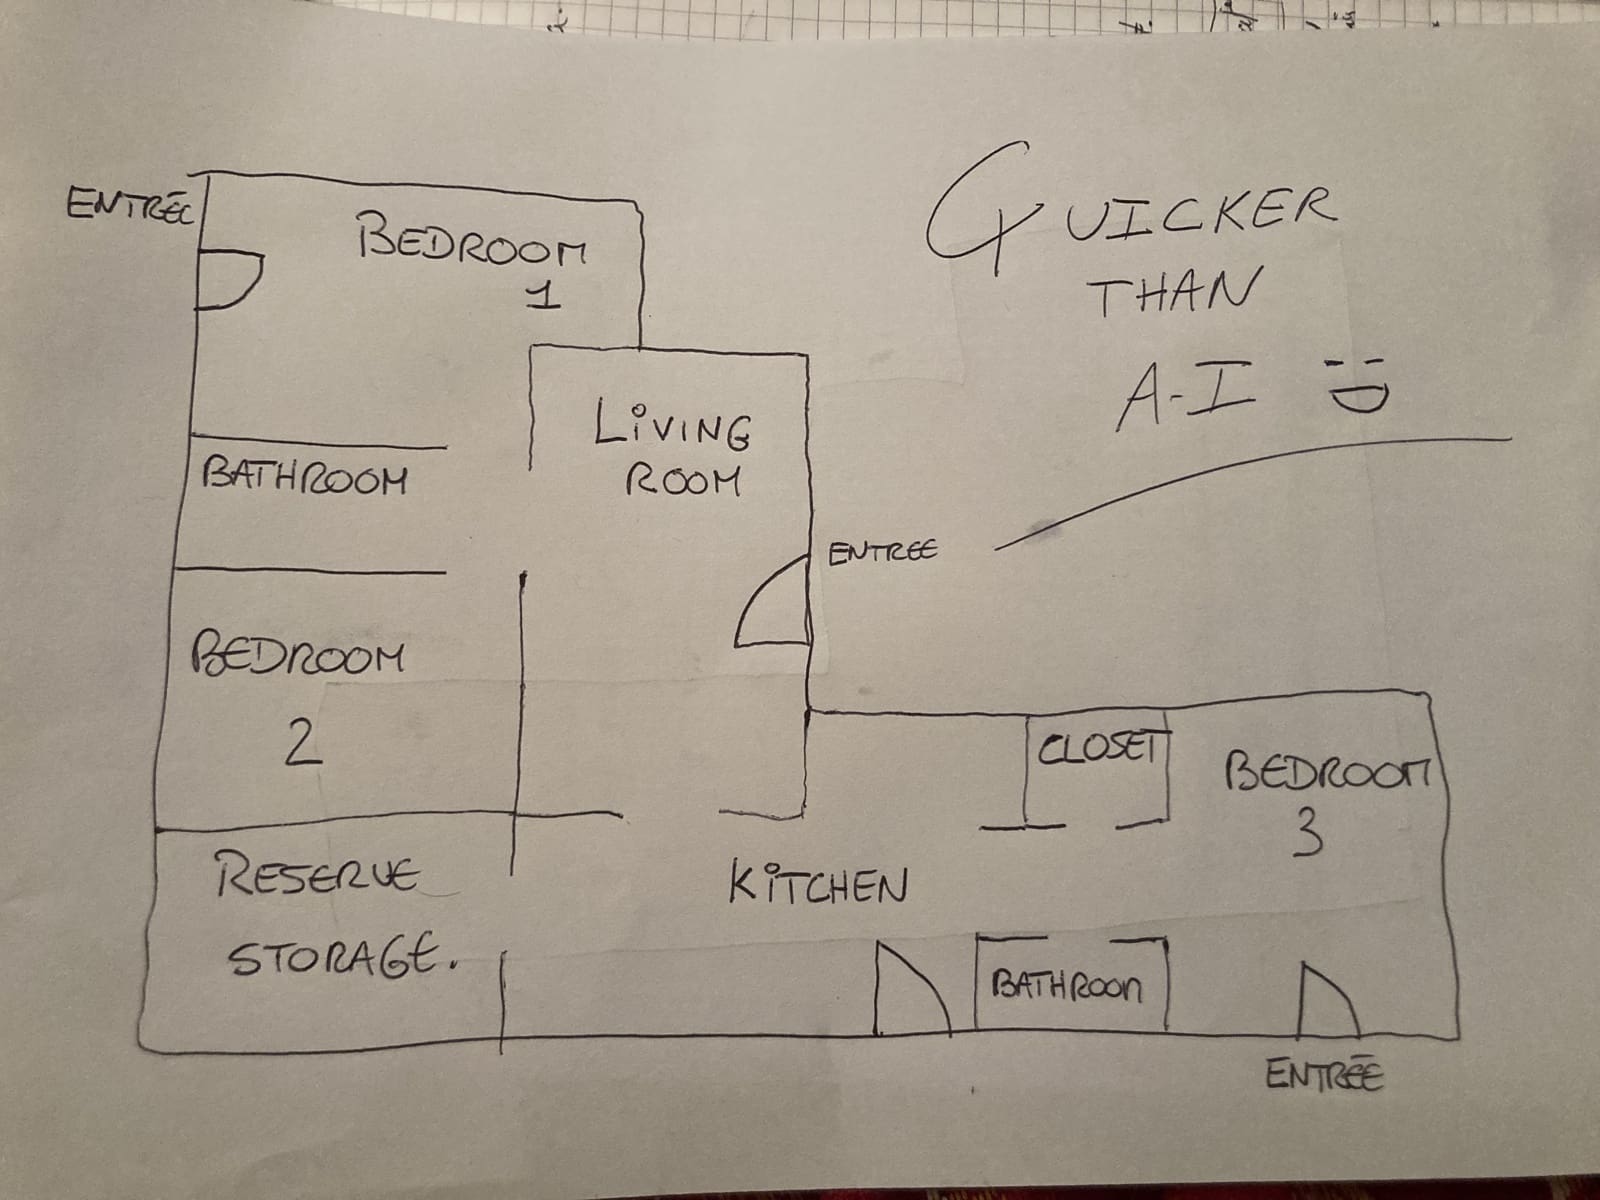 ENTRÉE
BEDROOM
1
QUICKER
THAN
A-I
LiVING
ROOM
BATHROOM
ENTREE
BEDROOM
2
CLOSET
BEDROOM
3
RESERVE
STORAGE.
KiTCHEN
BATHROOM
ENTRÉE